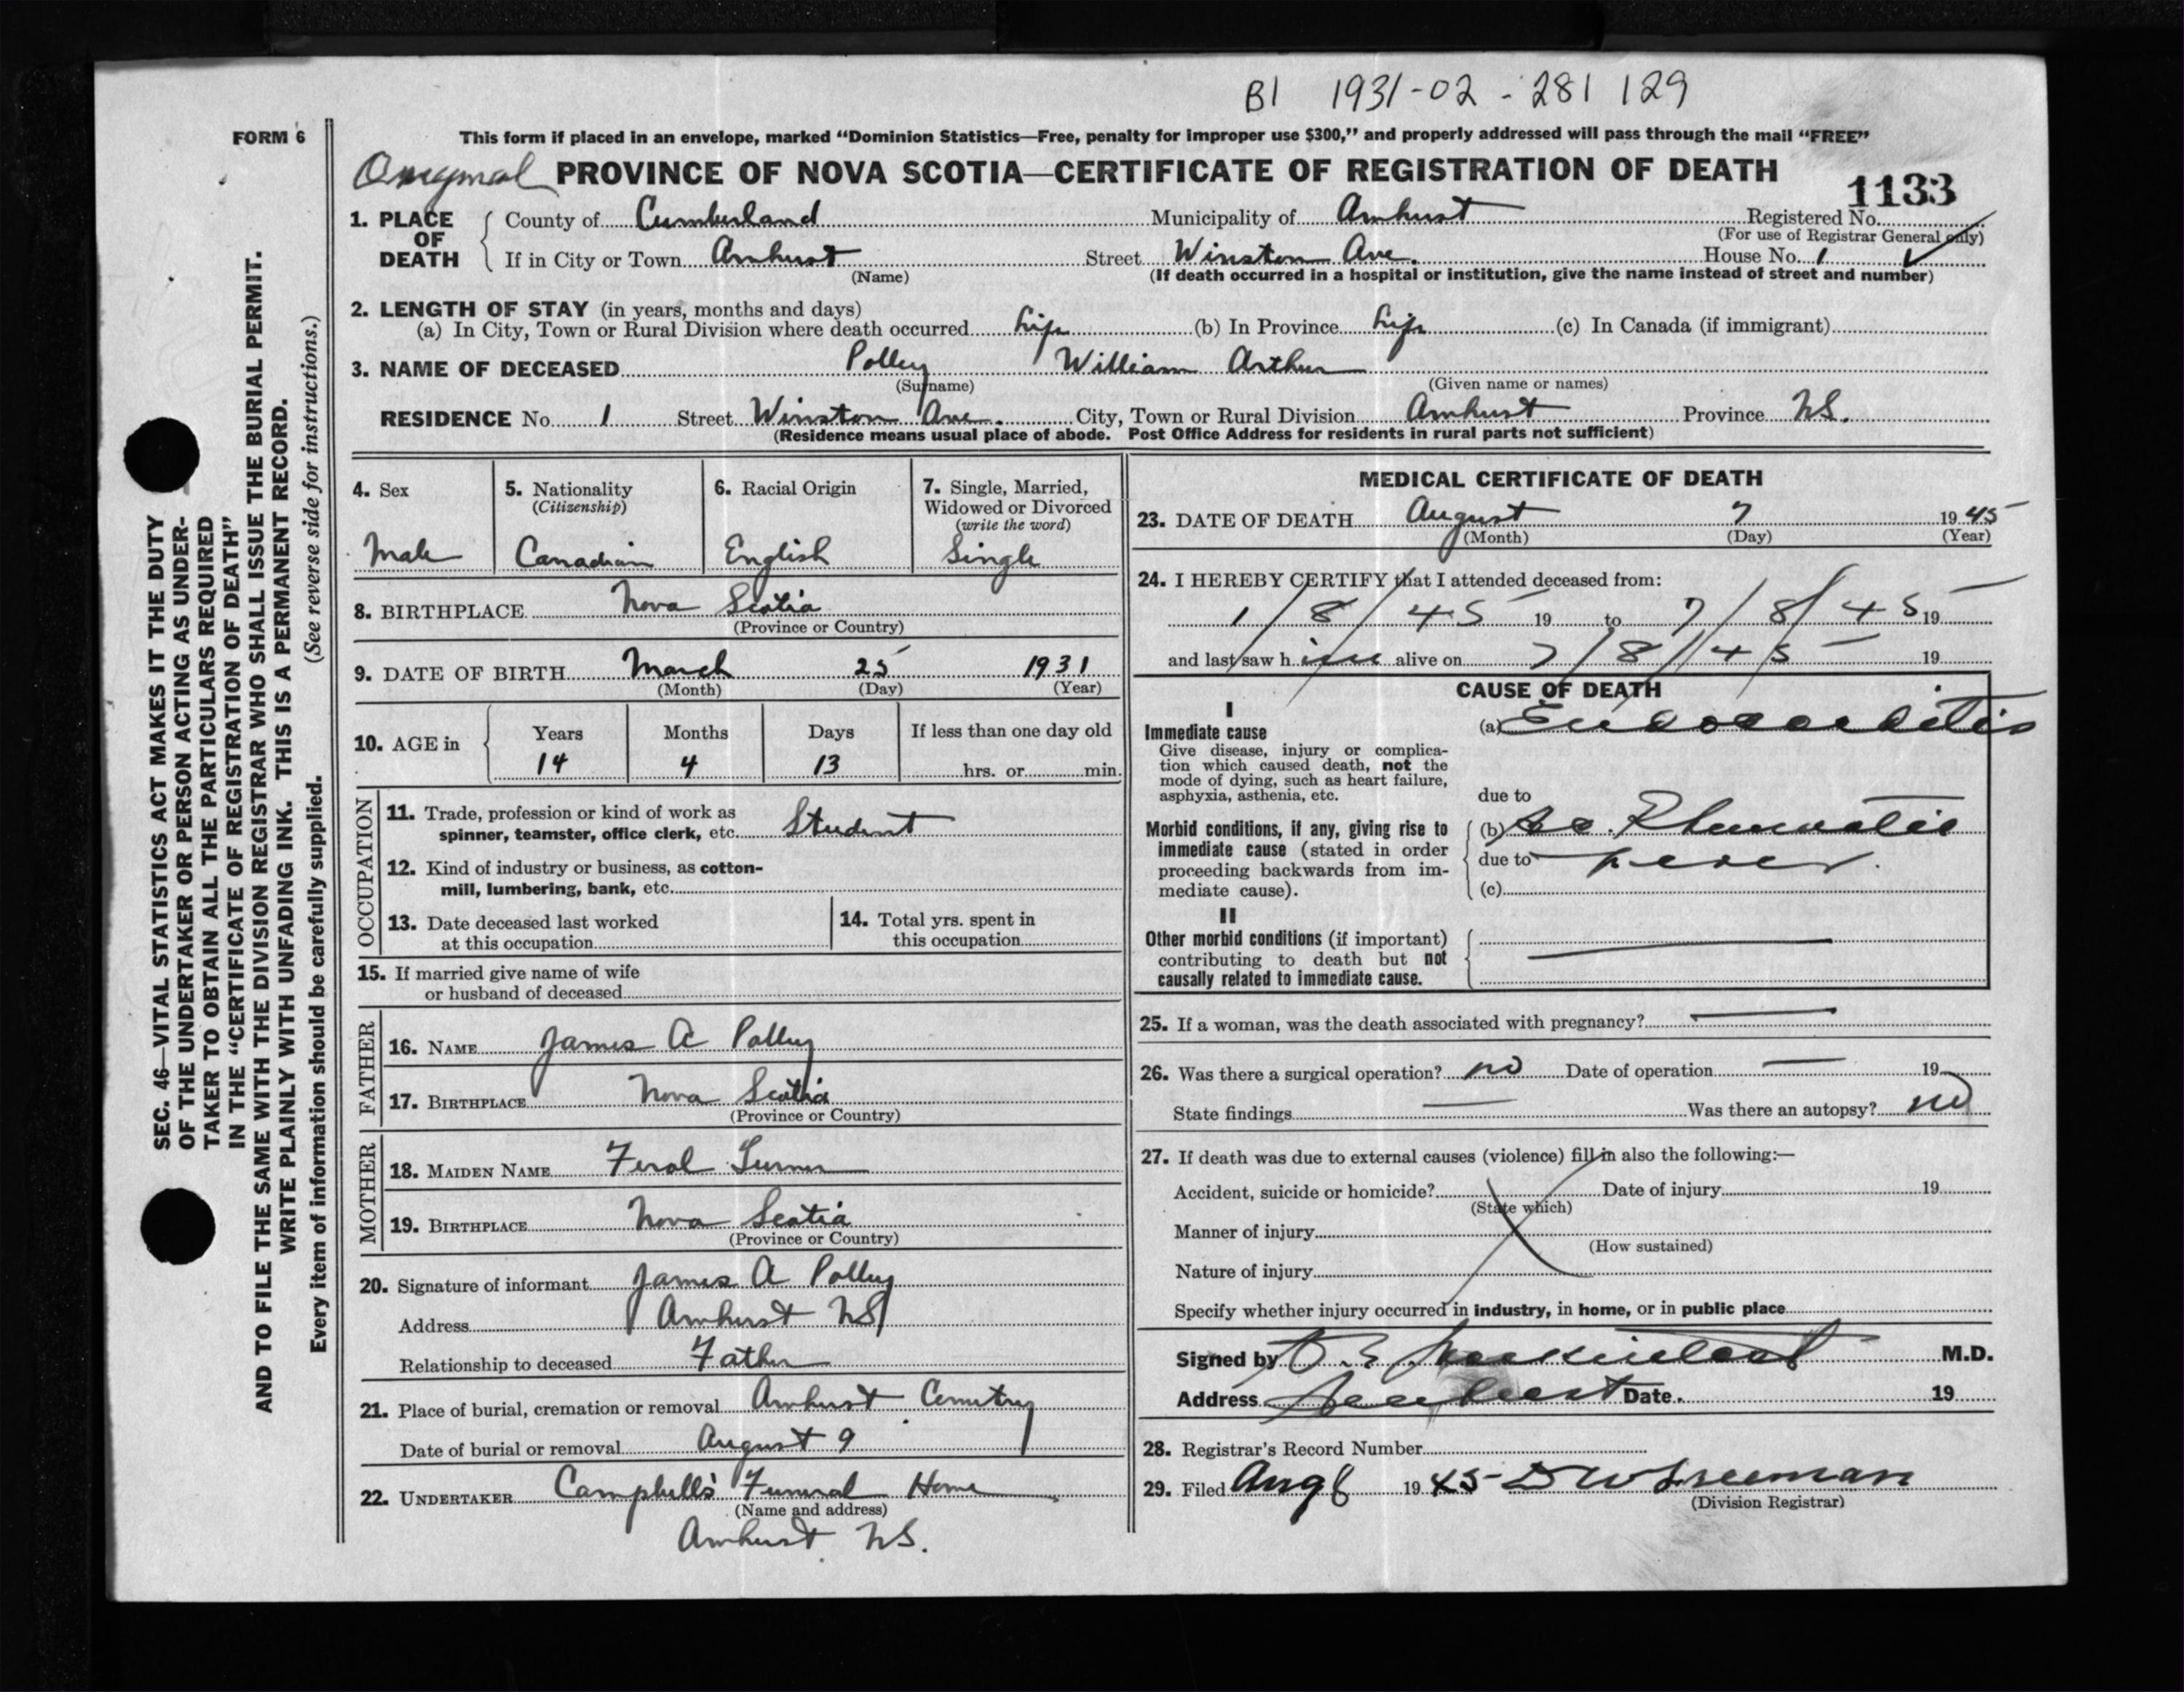 B1 1931-02-281129
FORM 6
This form if placed in an envelope, marked “Dominion Statistics—Free, penalty for improper use $300,” and properly addressed will pass through the mail “FREE”
Original PROVINCE OF NOVA SCOTIA—CERTIFICATE OF REGISTRATION OF DEATH
1133
1. PLACE OF DEATH County of Cumberland Municipality of Amherst Registered No.
(For use of Registrar General only)
If in City or Town Amherst Street Winston Ave. House No. 1
(Name) (If death occurred in a hospital or institution, give the name instead of street and number)
2. LENGTH OF STAY (in years, months and days)
(a) In City, Town or Rural Division where death occurred Life (b) In Province Life (c) In Canada (if immigrant)
3. NAME OF DECEASED Polley William Arthur
(Surname) (Given name or names)
RESIDENCE No. 1 Street Winston Ave. City, Town or Rural Division Amherst Province NS.
(Residence means usual place of abode. Post Office Address for residents in rural parts not sufficient)
4. Sex
Male
5. Nationality
(Citizenship)
Canadian
6. Racial Origin
English
7. Single, Married,
Widowed or Divorced
(write the word)
Single
8. BIRTHPLACE Nova Scotia
(Province or Country)
9. DATE OF BIRTH March 25 1931
(Month) (Day) (Year)
10. AGE in Years Months Days If less than one day old
14 4 13 hrs. or min.
OCCUPATION
11. Trade, profession or kind of work as
spinner, teamster, office clerk, etc. Student
12. Kind of industry or business, as cotton-
mill, lumbering, bank, etc.
13. Date deceased last worked
at this occupation
14. Total yrs. spent in
this occupation
15. If married give name of wife
or husband of deceased
FATHER
16. NAME James A Polley
17. BIRTHPLACE Nova Scotia
(Province or Country)
MOTHER
18. MAIDEN NAME Feral Turner
19. BIRTHPLACE Nova Scotia
(Province or Country)
20. Signature of informant James A Polley
Address Amherst NS
Relationship to deceased Father
21. Place of burial, cremation or removal Amherst Cemetry
Date of burial or removal August 9
22. UNDERTAKER Campbell's Funeral Home
(Name and address)
Amherst NS.
MEDICAL CERTIFICATE OF DEATH
23. DATE OF DEATH August 7 1945
(Month) (Day) (Year)
24. I HEREBY CERTIFY that I attended deceased from:
1/8/45 19 to 7/8/45 19
and last saw him alive on 7/8/45 19
CAUSE OF DEATH
I
Immediate cause
Give disease, injury or complica-
tion which caused death, not the
mode of dying, such as heart failure,
asphyxia, asthenia, etc.
(a) Endocarditis
due to
Morbid conditions, if any, giving rise to
immediate cause (stated in order
proceeding backwards from im-
mediate cause).
(b) Ac. Rheumatic
due to fever.
(c)
II
Other morbid conditions (if important)
contributing to death but not
causally related to immediate cause.
25. If a woman, was the death associated with pregnancy?
26. Was there a surgical operation? no Date of operation 19
State findings Was there an autopsy? no
27. If death was due to external causes (violence) fill in also the following:—
Accident, suicide or homicide? Date of injury 19
(State which)
Manner of injury
(How sustained)
Nature of injury
Specify whether injury occurred in industry, in home, or in public place
Signed by M.D.
Address Amherst Date 19
28. Registrar's Record Number
29. Filed Aug 8 1945 D W Freeman
(Division Registrar)
SEC. 46—VITAL STATISTICS ACT MAKES IT THE DUTY
OF THE UNDERTAKER OR PERSON ACTING AS UNDER-
TAKER TO OBTAIN ALL THE PARTICULARS REQUIRED
IN THE “CERTIFICATE OF REGISTRATION OF DEATH”
AND TO FILE THE SAME WITH THE DIVISION REGISTRAR WHO SHALL ISSUE THE BURIAL PERMIT.
WRITE PLAINLY WITH UNFADING INK. THIS IS A PERMANENT RECORD.
Every item of information should be carefully supplied. (See reverse side for instructions.)